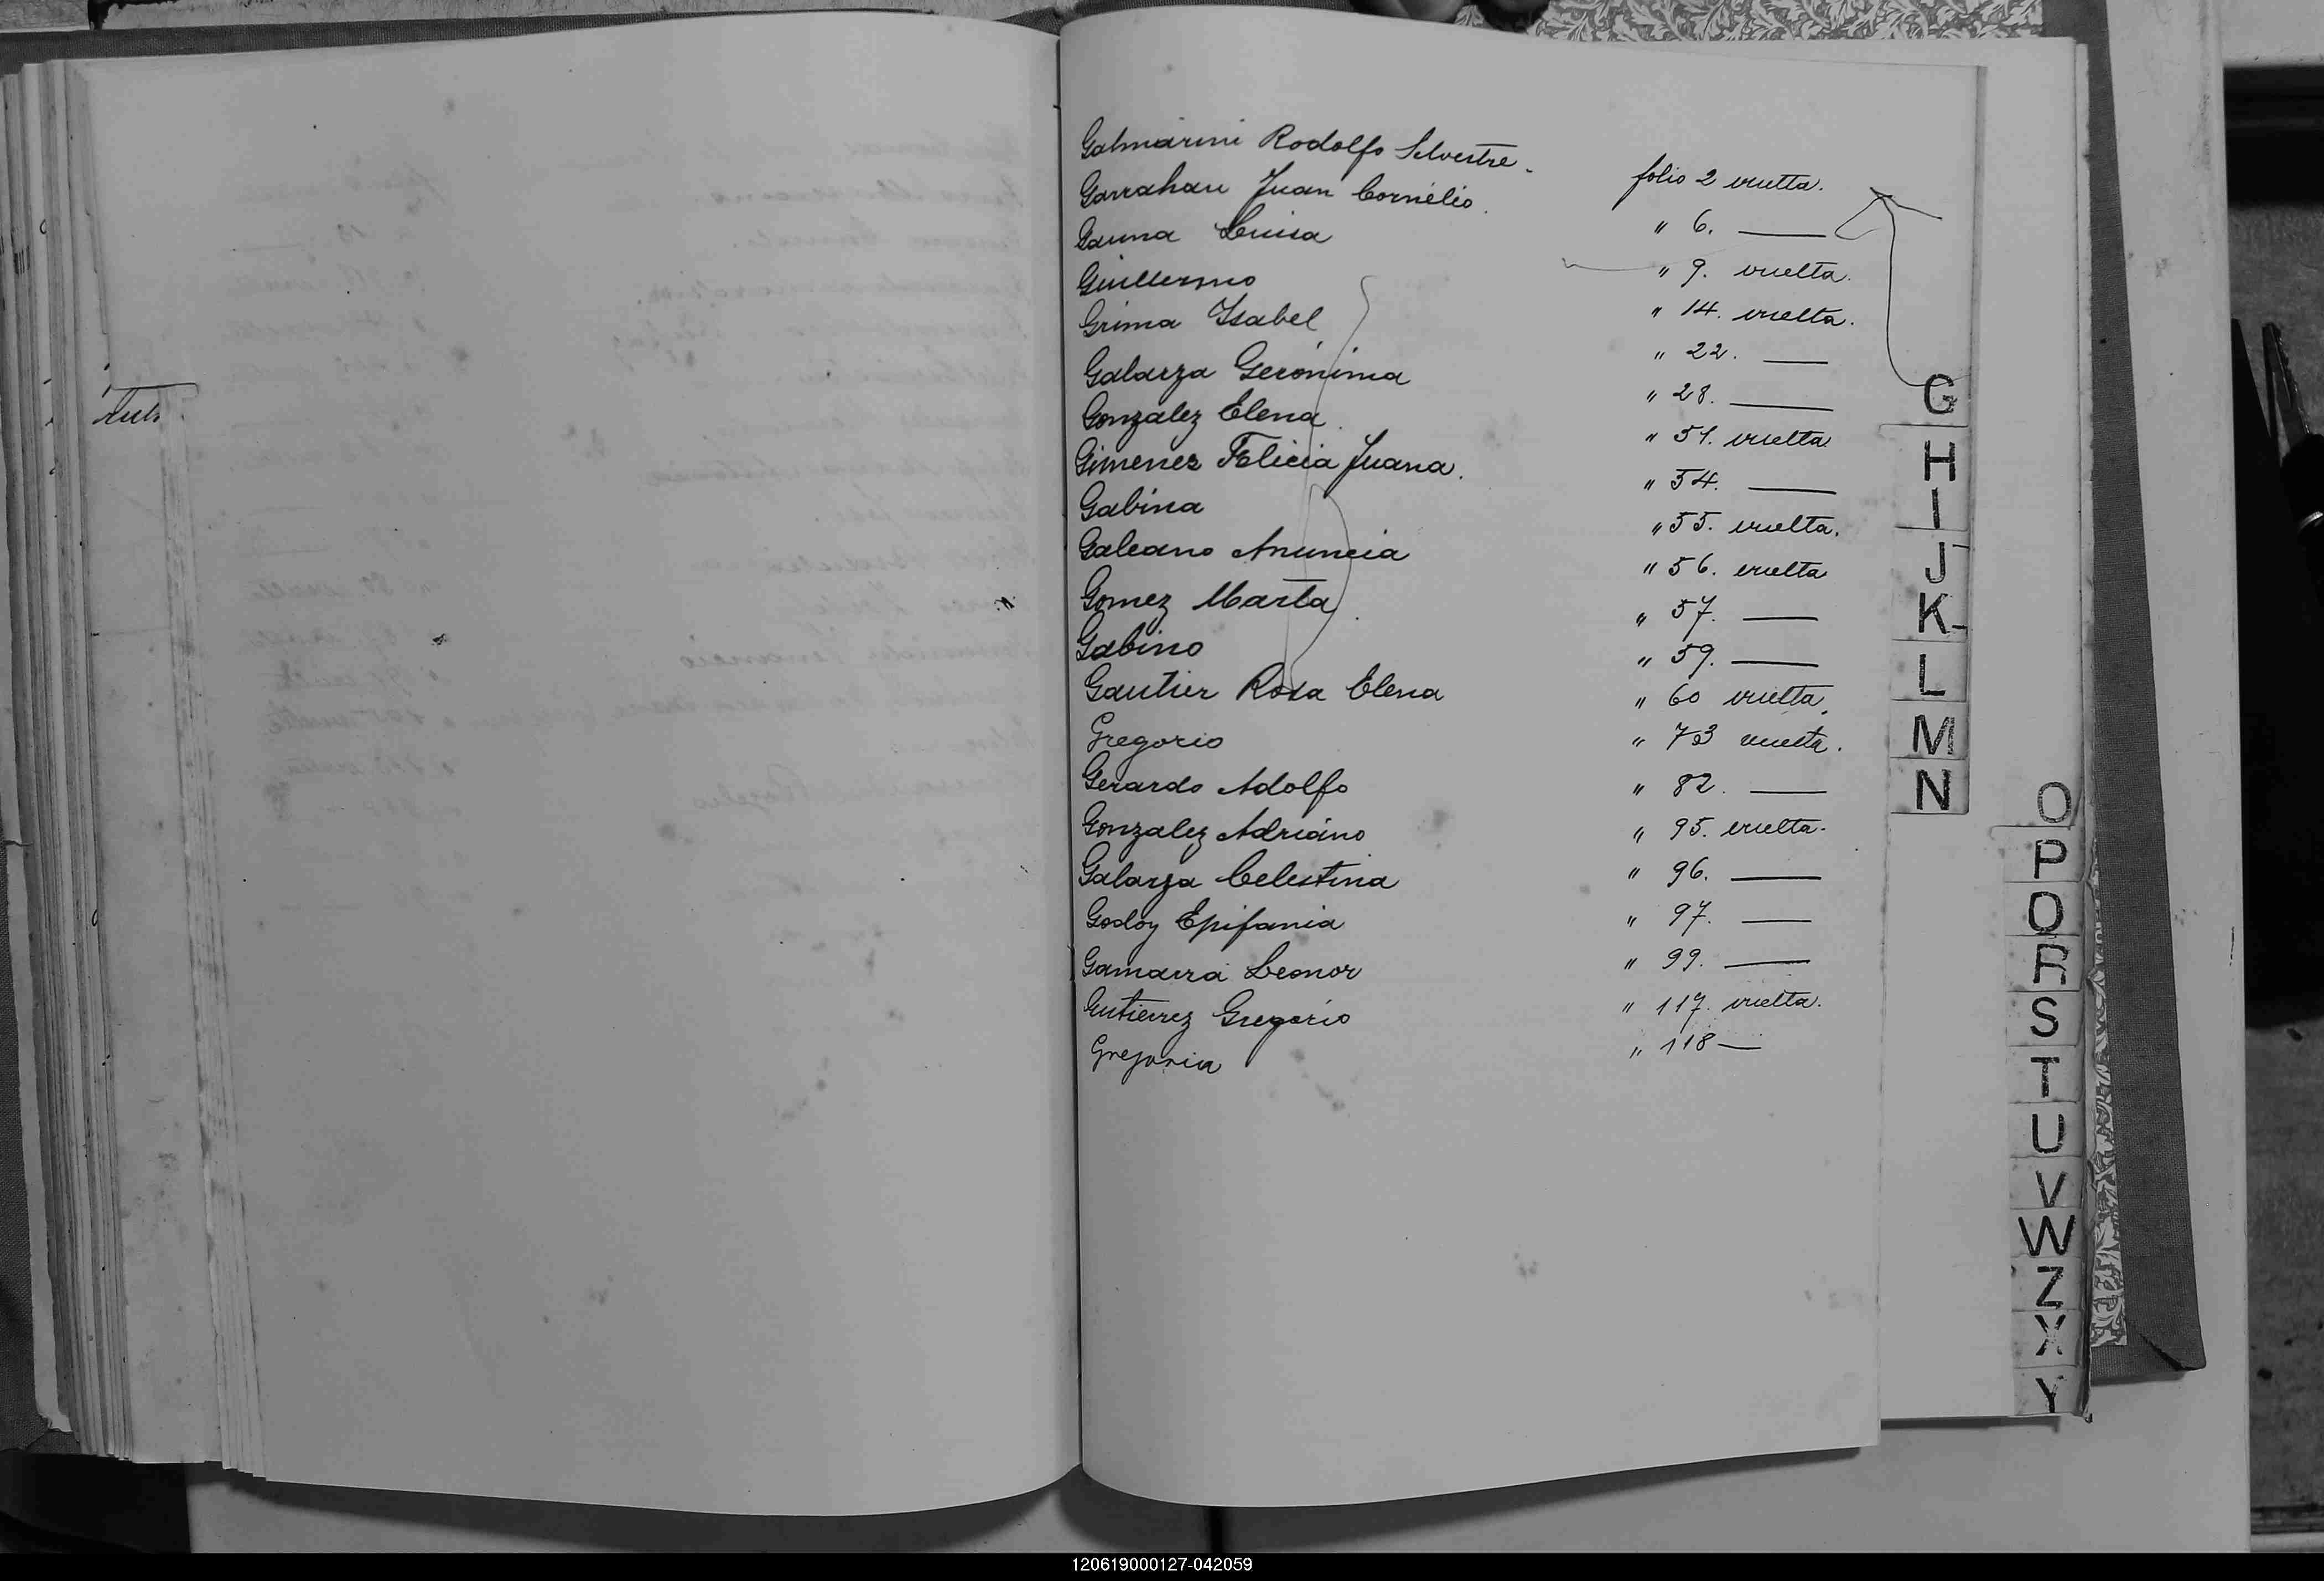 Galmarini Rodolfo Silvestre. folio 2 vuelta.
Garrahan Juan Cornelio. " 6. —
Gauna Luisa " 9. vuelta.
Guillermo " 14. vuelta.
Grima Isabel " 22. —
Galarza Gerónima " 28. —
Gonzalez Elena. " 51. vuelta
Gimenez Felicia Juana. " 54. —
Gabina " 55. vuelta.
Galeano Anuncia " 56. vuelta
Gomez Marta. " 57. —
Gabino " 59. —
Gautier Rosa Elena " 60 vuelta.
Gregorio " 73 vuelta.
Gerardo Adolfo " 82. —
Gonzalez Adriáno " 95. vuelta.
Galarza Celestina " 96. —
Godoy Epifania " 97. —
Gamarra Leonor " 99. —
Gutierrez Gregorio " 117. vuelta.
Gregoria " 118 —
G
H
I
J
K
L
M
N
O
P
Q
R
S
T
U
V
W
Z
X
Y
120619000127-042059